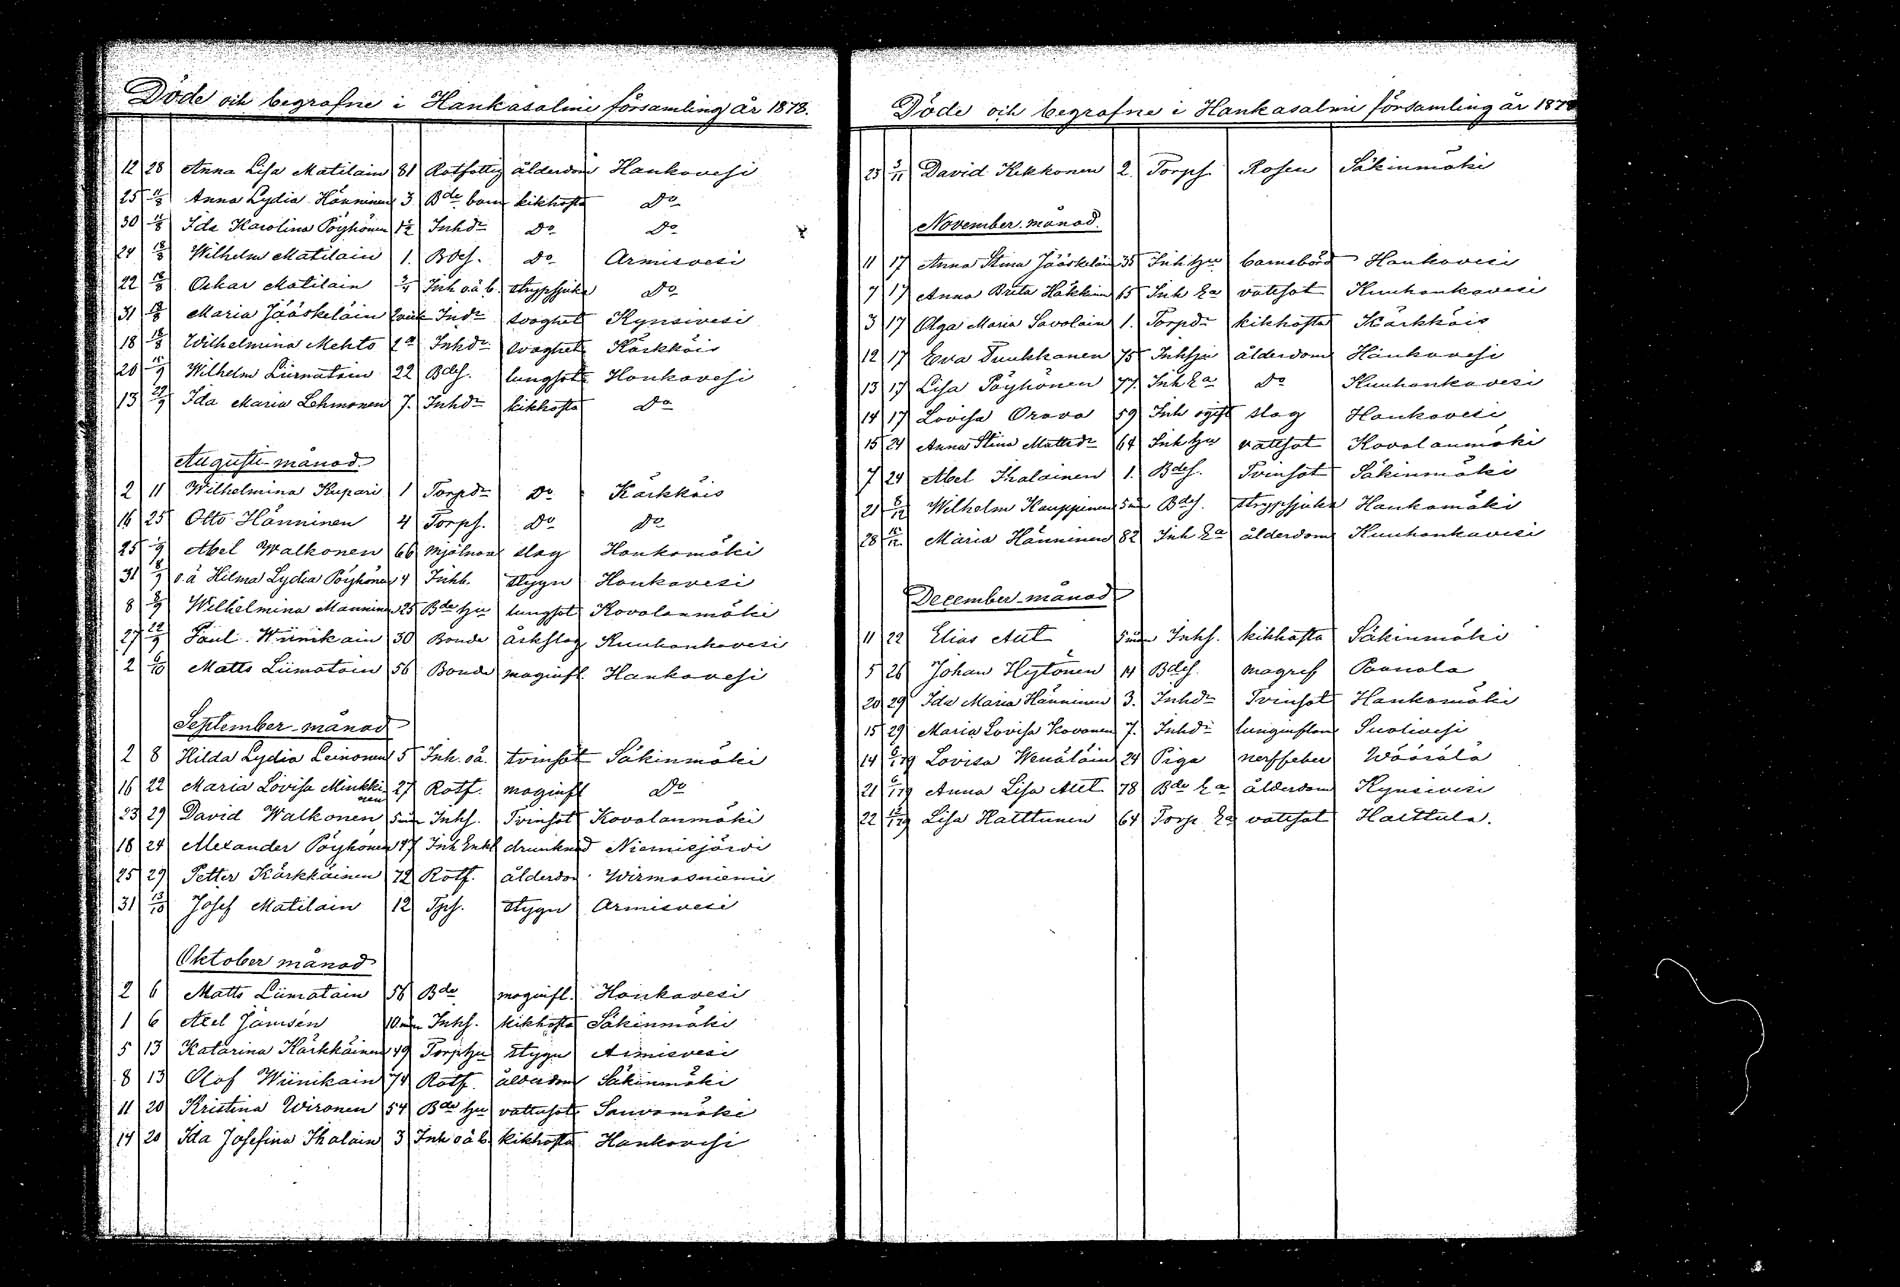 Döde och begrafne i Hankasalmi församling år 1878.
12 28 Anna Lisa Matilain 81 Rotfattig ålderdom Hankavesi
25 11/8 Anna Lydia Hänninen 3 Bde barn kikhosta Do
30 11/8 Ida Karolina Pöyhönen 1½ Inhdr Do Do
24 18/8 Wilhelm Matilain 1. Bdes. Do Armisvesi
22 18/8 Oskar Matilain 3/4 Inh oä b. strypsjuka Do
31 18/8 Maria Jääskeläin Indr svaghet Kynsivesi
18 18/8 Wilhelmina Mehto Inhdr svaghet Kärkkäis
20 15/9 Wilhelm Liimatain 22 Bdes. lungsot Hankavesi
13 22/9 Ida Maria Lehmonen 7. Inhdr kikhosta Do
Augusti månad
2 11 Wilhelmina Kupari 1 Torpdr Do Kärkkäis
16 25 Otto Hänninen 4 Torps. Do Do
25 1/9 Abel Walkonen 66 Mjölnare slag Hankamäki
31 8/9 o.ä Hilma Lydia Pöyhönen 4 Inhb. stygn Hankavesi
8 8/9 Wilhelmina Manninen 25 Bde hu lungsot Kovalanmäki
27 22/9 Paul Wiinikain 30 Bonde åskslag Kuuhankavesi
2 6/10 Matts Liimatain 56 Bonde maginfl. Hankavesi
September månad
2 8 Hilda Lydia Leinonen 5 Inh. oä. tvinsot Säkinmäki
16 22 Maria Lovisa Minkkinen 27 Rotf. maginfl Do
23 29 David Walkonen 5 mån Inhs. Tvinsot Kovalanmäki
18 24 Alexander Pöyhönen 47 Inh Enkl drunknad Niemisjärvi
25 29 Petter Kärkkäinen 72 Rotf. ålderdom Wirmasniemi
31 13/10 Josef Matilain 12 Tps. stygn Armisvesi
Oktober månad
2 6 Matts Liimatain 56 Bde maginfl. Hankavesi
1 6 Axel Jämsén 10 mån Inhs. kikhosta Säkinmäki
5 13 Katarina Kärkkäinen 49 Torp hu stygn Armisvesi
8 13 Olof Wiinikain 74 Rotf. ålderdom Säkinmäki
11 20 Kristina Wironen 54 Bde hu vattusot Sauvamäki
14 20 Ida Josefina Ihalain 3 Inh oä b. kikhosta Hankavesi
Döde och begrafne i Hankasalmi församling år 1878
23 3/11 David Kekkonen 2. Torps. Rosen Säkinmäki
November månad.
11 17 Anna Stina Jääskeläin 35 Inh hu barnsbörd Hankavesi
7 17 Anna Brita Häkkinen 65 Inh Ea vattsot Kuuhankavesi
3 17 Olga Maria Savolain 1. Torpdr kikhosta Kärkkäis
12 17 Ewa Tuukkanen 75 Inh hu ålderdom Hankavesi
13 17 Lisa Pöyhönen 77. Inh Ea Do Kuuhankavesi
14 17 Lovisa Orava 59 Inh ogift slag Hankavesi
15 24 Anna Stina Mattsdr 64 Inh hu vattsot Kovalanmäki
7 24 Abel Ihalainen 1. Bdes. Tvinsot Säkinmäki
21 8/12 Wilhelm Kauppinen 5 mån Bdes. strypsjuka Hankamäki
28 15/12 Maria Hänninen 82 Inh Ea ålderdom Kuuhankavesi
December månad
11 22 Elias Aut 5 mån Inhs. kikhosta Säkinmäki
5 26 Johan Hytönen 14 Bdes. magref Paanala
20 29 Ida Maria Hänninen 3. Inhdr Tvinsot Hankamäki
15 29 Maria Lovisa Kovanen 7. Inhdr lunginflam Suolivesi
14 6/1 79 Lovisa Wenäläin 24 Piga nerffeber Wäärälä
21 6/1 79 Anna Lisa Aut 78 Bde Ea ålderdom Kynsivesi
22 12/1 79 Lisa Halttunen 64 Torp Ea vattsot Halttula.